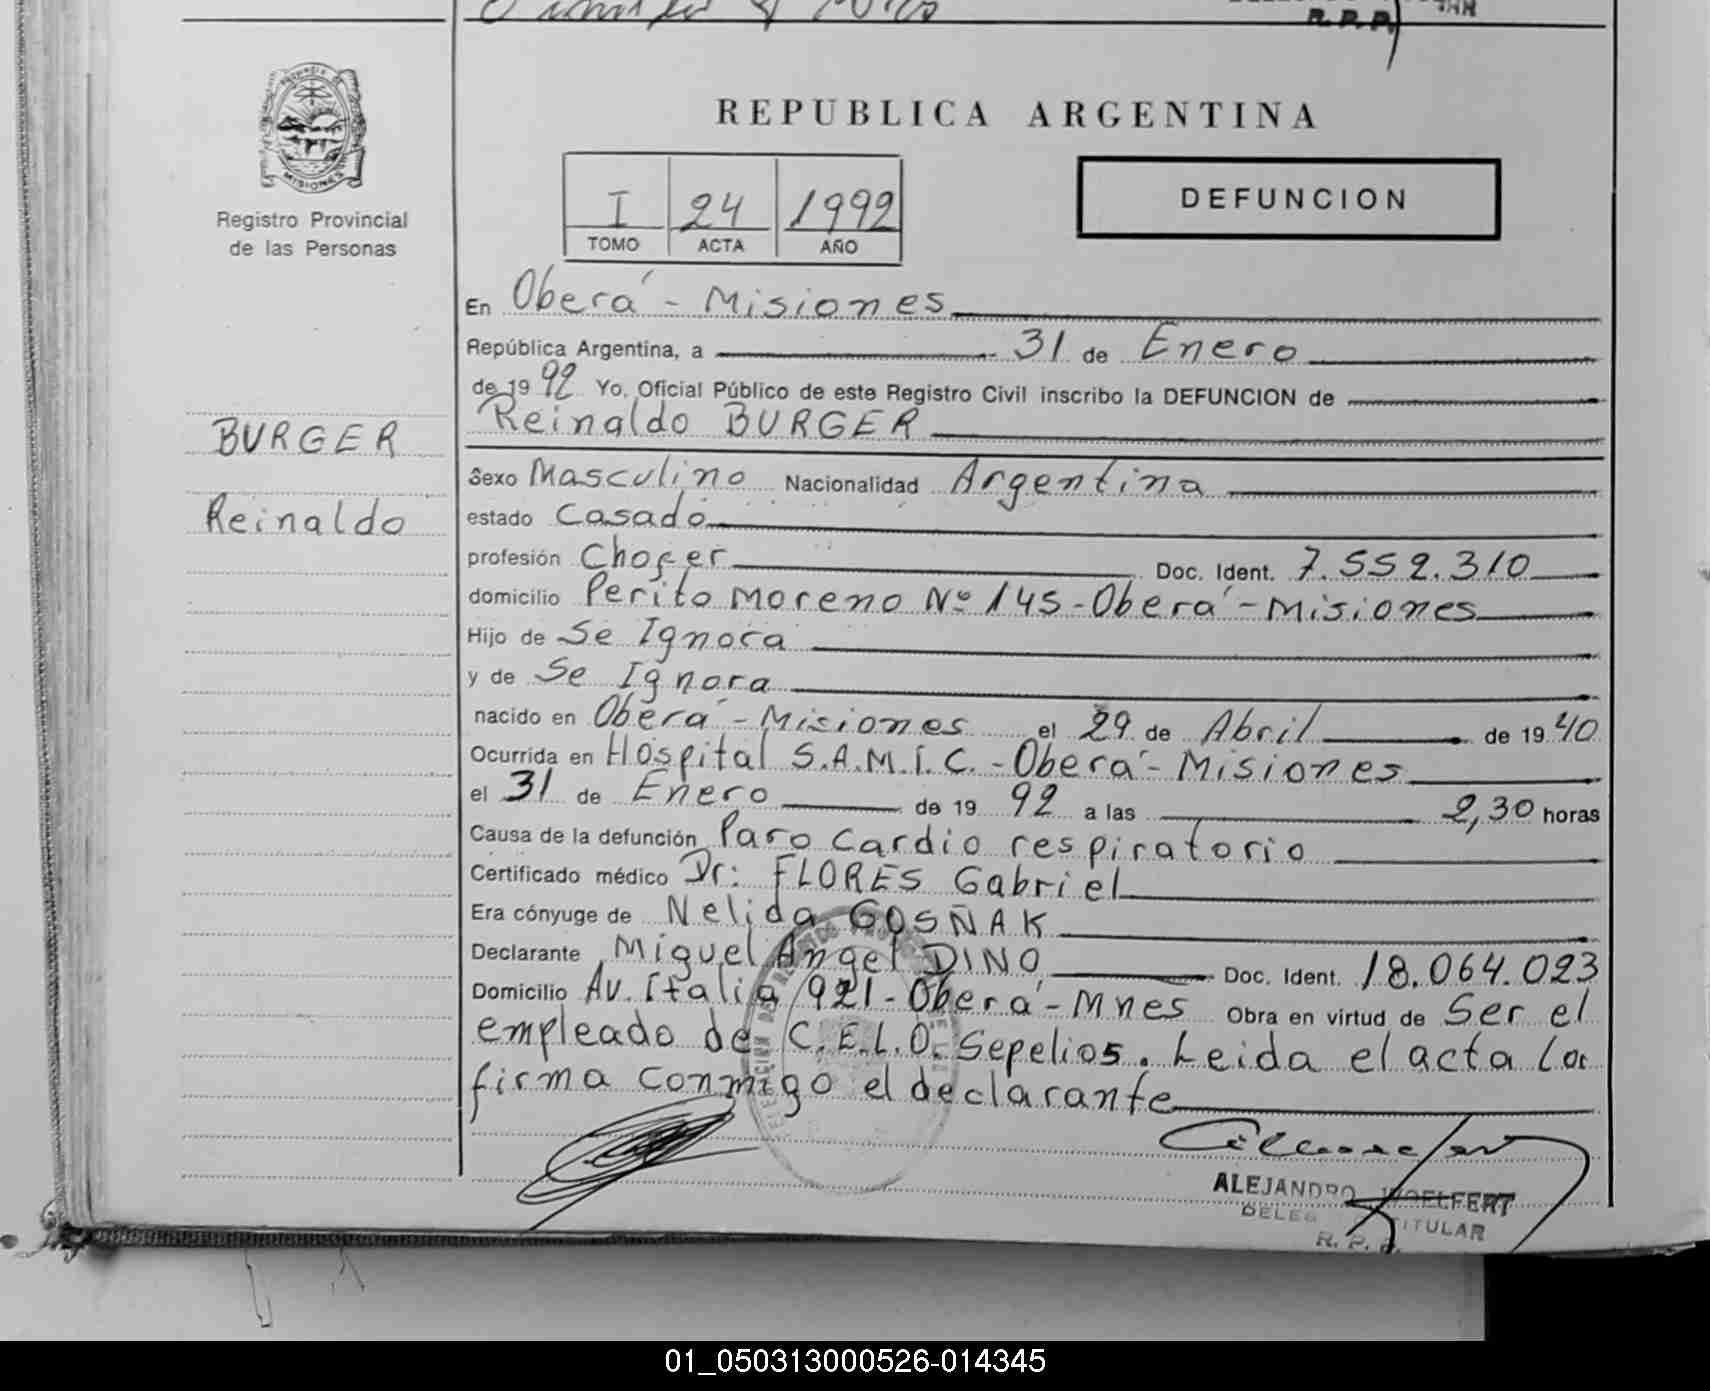 R.P.P.
MISIONES
Registro Provincial
de las Personas
REPUBLICA ARGENTINA
I 24 1992
TOMO ACTA AÑO
DEFUNCION
En Oberá - Misiones
República Argentina, a 31 de Enero
de 1992 Yo, Oficial Público de este Registro Civil inscribo la DEFUNCION de
Reinaldo BURGER
BURGER
Reinaldo
Sexo Masculino Nacionalidad Argentina
estado Casado
profesión Chofer Doc. Ident. 7.552.310
domicilio Perito Moreno Nº 145-Oberá-Misiones
Hijo de Se Ignora
y de Se Ignora
nacido en Oberá-Misiones el 29 de Abril de 1940
Ocurrida en Hospital S.A.M.I.C.-Oberá-Misiones
el 31 de Enero de 1992 a las 2,30 horas
Causa de la defunción Paro Cardio respiratorio
Certificado médico Dr: FLORES Gabriel
Era cónyuge de Nelida GOSÑAK
Declarante Miguel Angel DINO Doc. Ident. 18.064.023
Domicilio Av. Italia 921-Oberá-Mnes Obra en virtud de Ser el
empleado de C.E.L.O. Sepelios. Leida el acta la
firma conmigo el declarante
ALEJANDRO WOELFERT
TITULAR
R. P. P.
01_050313000526-014345